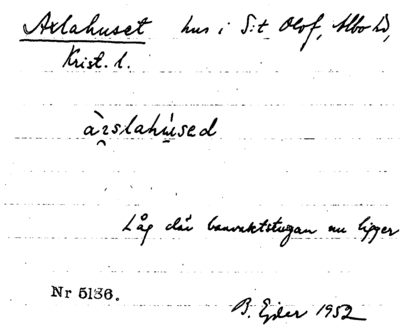 Axlahuset hus i S:t Olof, Albo hd,
Krist. l.
àrslahúsed
Låg där banvaktstugan nu ligger
Nr 5136.
B. Ejder 1952